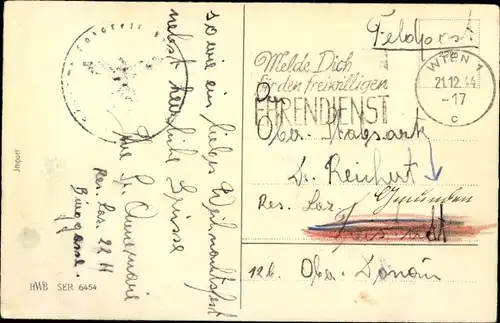 so wie ein liebes Weihnachtsfest
nebst herzliche Grüsse
Ihre
Res. Laz. 22 H
Import
HWB SER 6454
Feldpost
WIEN 1
21.12.44
-17
c
Melde Dich
für den freiwilligen
EHRENDIENST
Ober Stabsarzt
Dr. Reichert
Res. Laz. Gmunden
12b. Ober-Donau